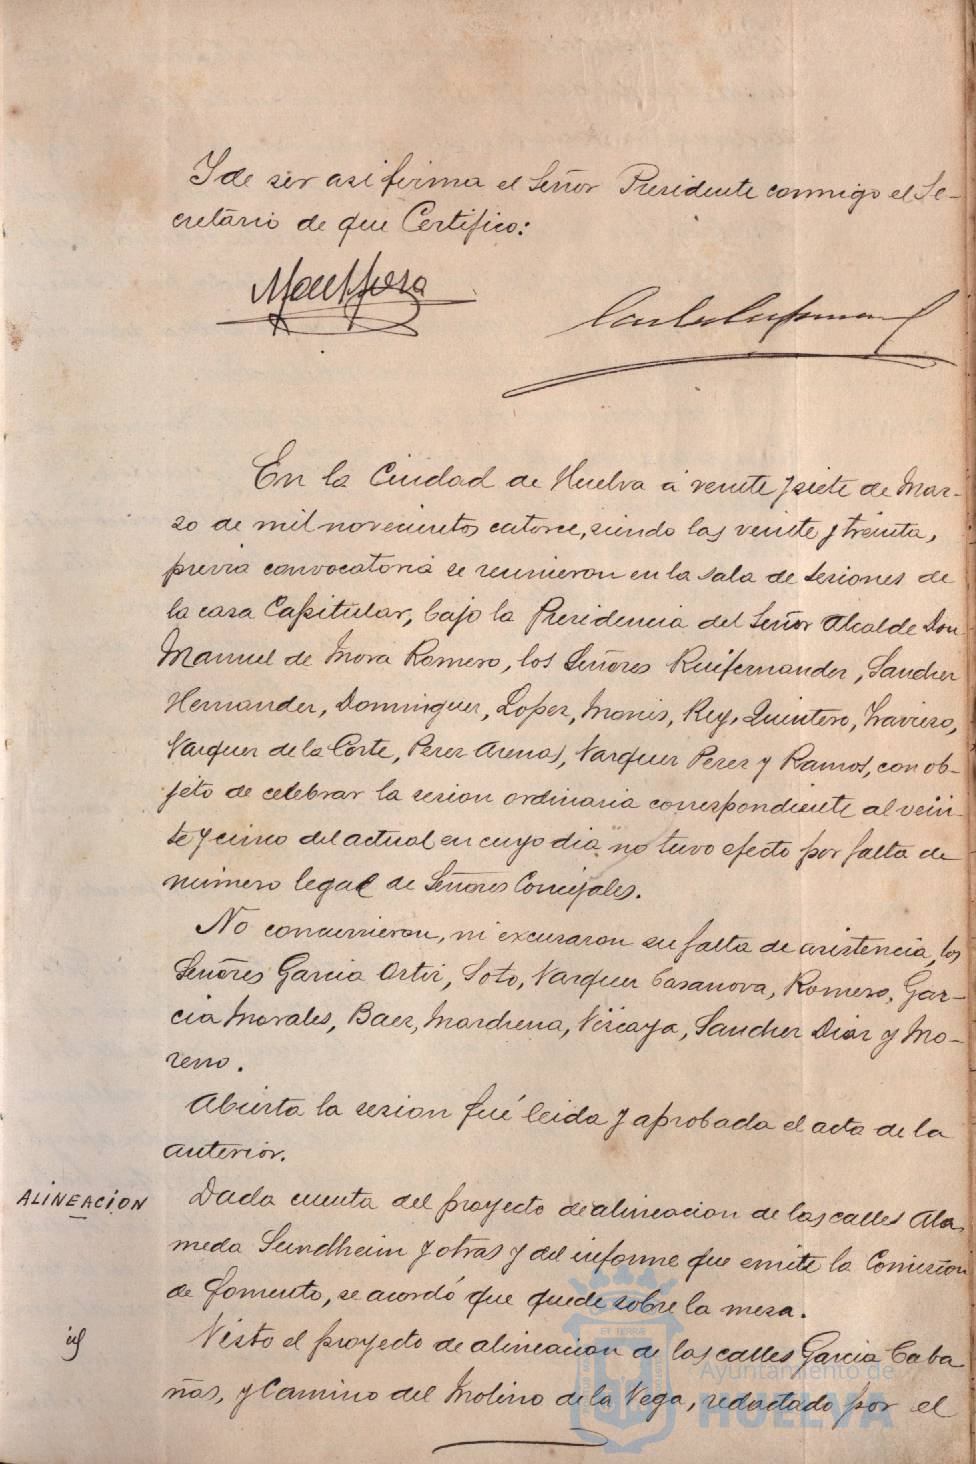 Y de ser asi firma el Señor Presidente conmigo el Se-
cretario de que Certifico:
En la Ciudad de Huelva á veinte y siete de Mar-
zo de mil novecientos catorce, siendo las veinte y treinta,
previa convocatoria se reunieron en la sala de sesiones de
la casa Capitular, bajo la Presidencia del Señor Alcalde Don
Manuel de Mora Romero, los Señores Ruifernandez, Sanchez
Hernandez, Dominguez, Lopez, Monis, Rey, Quintero, Travieso,
Vazquez de la Corte, Perez Arenas, Vazquez Perez y Ramos, con ob-
jeto de celebrar la sesion ordinaria correspondiente al vein-
te y cinco del actual en cuyo dia no tuvo efecto por falta de
número legal de Señores Concejales.
No concurrieron, ni excusaron su falta de asistencia, los
Señores Garcia Ortiz, Soto, Vazquez Casanova, Romero, Gar-
cia Morales, Baez, Marchena, Vizcaya, Sanchez Diaz y Mo-
reno.
Abierta la sesion fué leida y aprobada el acta de la
anterior.
ALINEACIÓN
Dada cuenta del proyecto de alineacion de las calles Ala
meda Sundheim y otras y del informe que emite la Comision
de fomento, se acordó que quede sobre la mesa.
Visto el proyecto de alineacion de las calles Garcia Caba
ñas, y Camino del Molino de la Vega, redactado por el
Ayuntamiento de
HUELVA